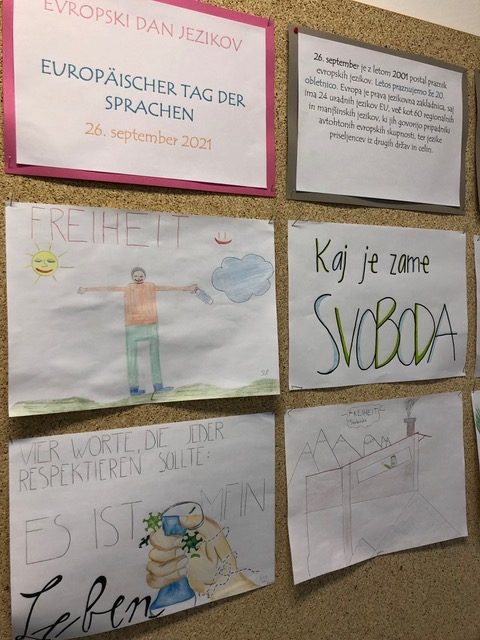 EVROPSKI DAN JEZIKOV
EUROPÄISCHER TAG DER
SPRACHEN
26. september 2021
26. september je z letom 2001 postal praznik
evropskih jezikov. Letos praznujemo že 20.
obletnico. Evropa je prava jezikovna zakladnica, saj
ima 24 uradnih jezikov EU, več kot 60 regionalnih
in manjšinskih jezikov, ki jih govorijo pripadniki
avtohtonih evropskih skupnosti, ter jezike
priseljencev iz drugih držav in celin.
FREIHEIT
Kaj je zame
SVOBODA
VIER WORTE, DIE JEDER
RESPEKTIEREN SOLLTE:
ES IST MEIN
Leben
FREIHEIT